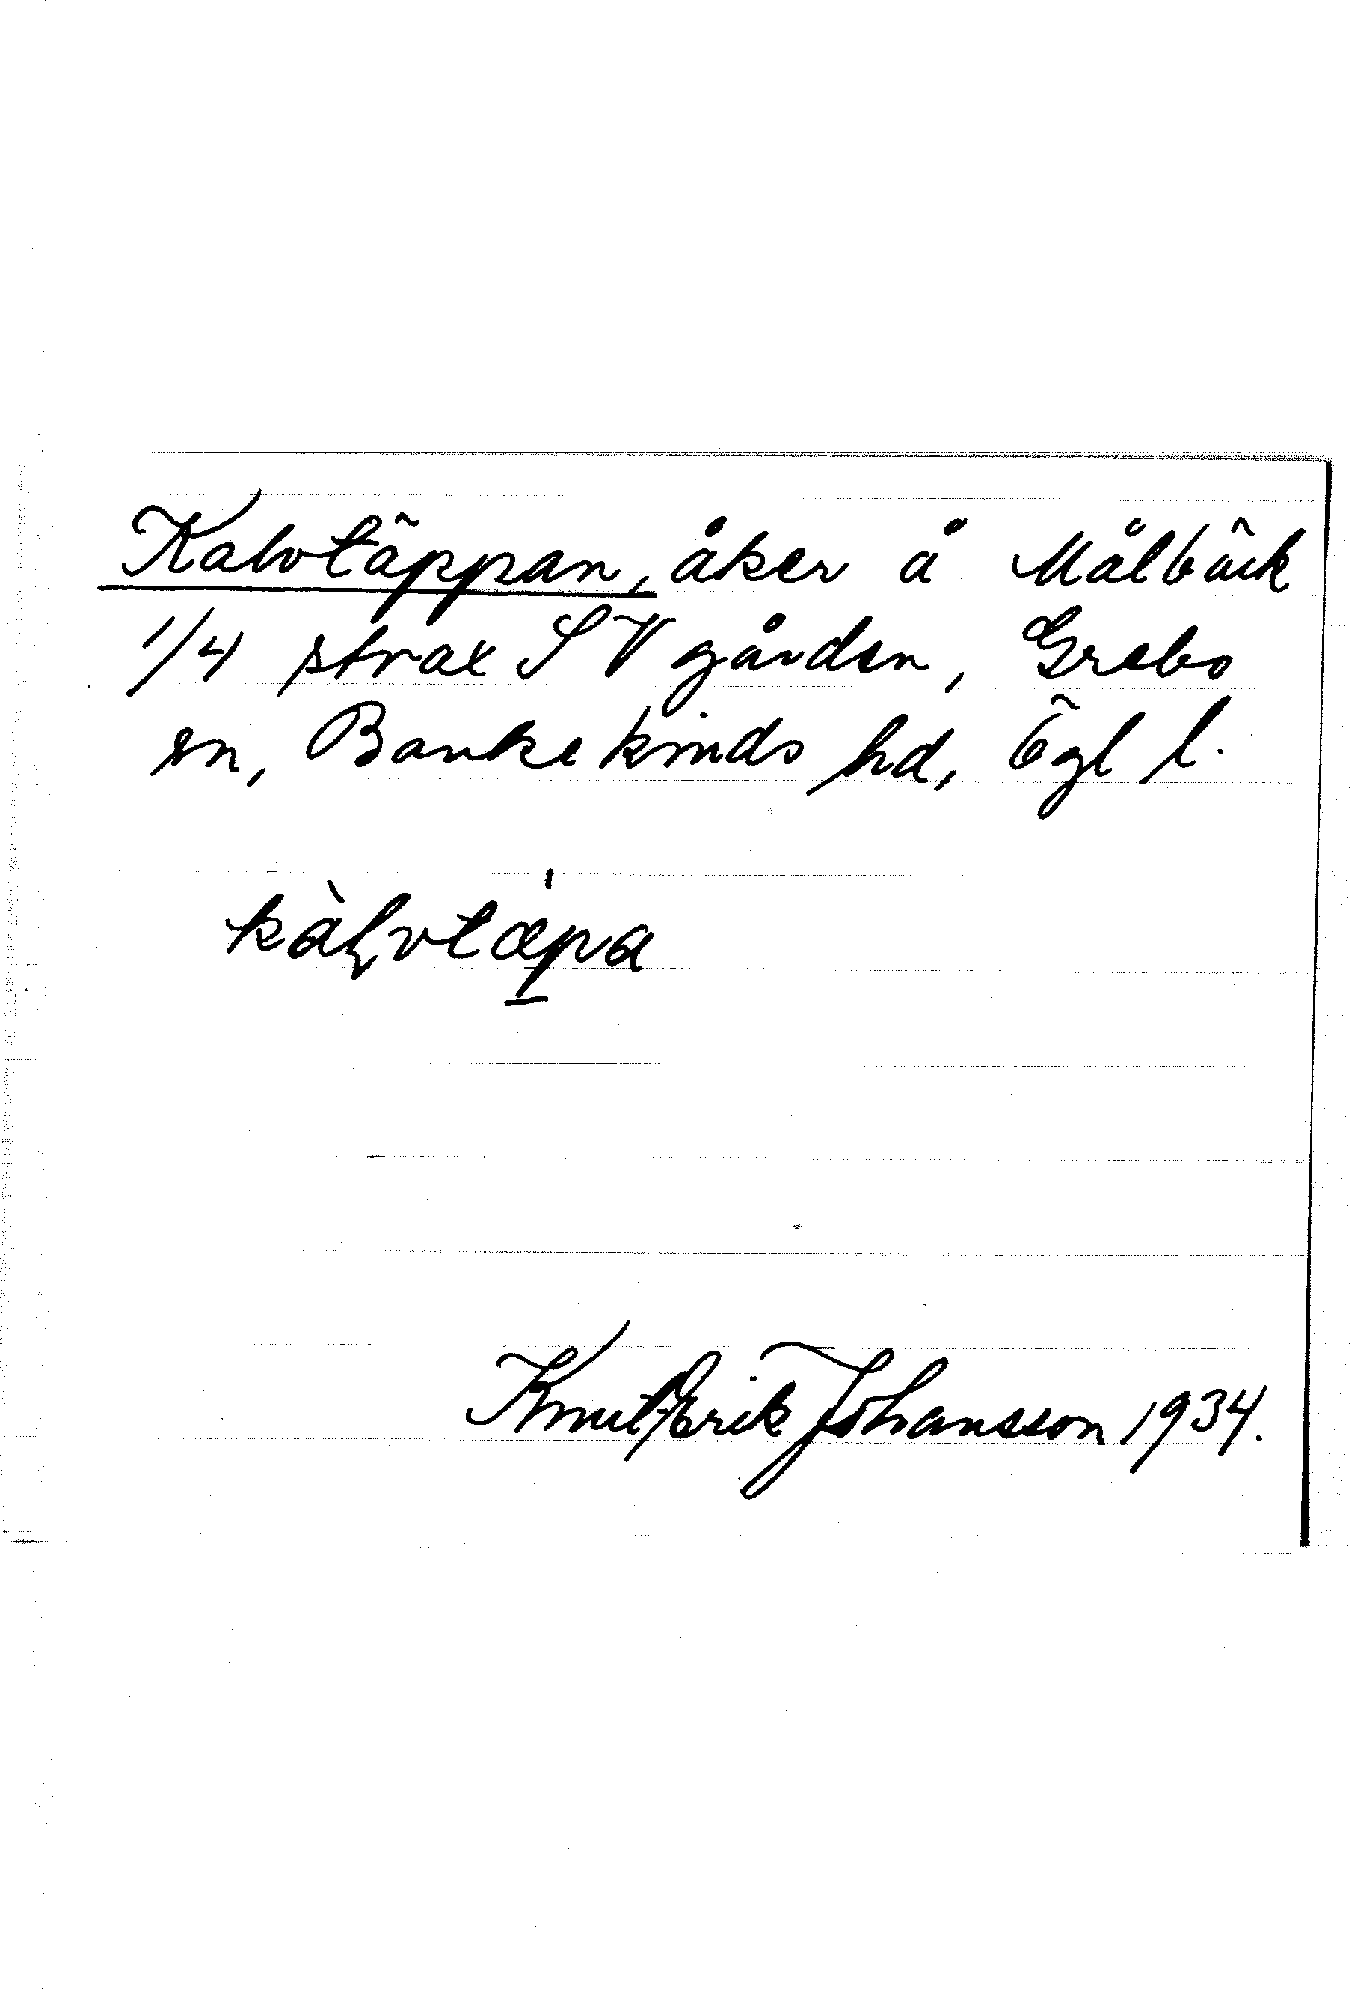 Kalvtäppan, åker å Målbäck
1/4 strax SV gården, Grebo
sn, Bankekinds hd, Ögl l.
kàļvtæ̍pa
Knut Erik Johansson 1934.